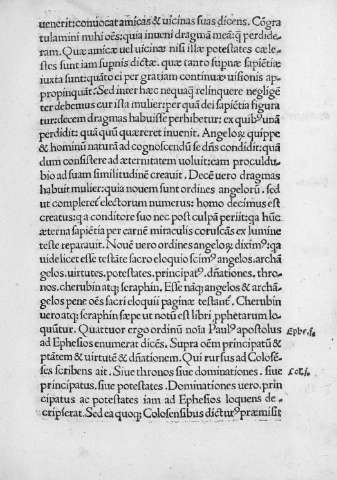 uenerit: conuocat amicas & uicinas suas dicens. Cõgra
tulamini mihi oẽs: quia inueni dragmã meã: q̃ perdide⸗
ram. Quæ amicæ uel uicinæ nisi illæ potestates cæle⸗
stes sunt iam supnis dictæ. quæ tanto supnæ sapiẽtiæ
iuxta sunt: quãto ei per gratiam continuæ uisionis ap⸗
propinquãt. Sed inter hæc nequaq̃ relinquere negligẽ
ter debemus cur ista mulier: per quã dei sapiẽtia figura
tur: decem dragmas habuisse perhibetur: ex quibꝰ unã
perdidit: quã quũ quæreret inuenit. Angeloꝝ quippe
& hominũ naturã ad cognoscendũ se dñs condidit: quã
dum consistere ad æternitatem uoluit: eam proculdu⸗
bio ad suam similitudinẽ creauit. Decẽ uero dragmas
habuit mulier: quia nouem sunt ordines angelorũ. sed
ut compleret electorum numerus: homo decimus est
creatus: qui a conditore suo nec post culpã periit: qa hũc
æterna sapiẽtia per carnẽ miraculis coruscãs ex lumine
teste reparauit. Nouẽ uero ordines angeloꝝ diximꝰ: qa
uidelicet esse testãte sacro eloquio scimꝰ angelos. archã
gelos. uirtutes. potestates. principatꝰ. dñationes. thro⸗
nos. cherubin atq; seraphin. Esse nãq; angelos & archã
gelos pene oẽs sacri eloquii paginæ testant̃. Cherubin
uero atq; seraphin sæpe ut notũ est libri pphetarum lo
quũtur. Quattuor ergo ordinũ noĩa Paulꝰ apostolus
ad Ephesios enumerat dicẽs. Supra oẽm principatũ &
ptãtem & uirtutẽ & dñationem. Qui rursus ad Colosẽ⸗
ses scribens ait. Siue thronos siue dominationes. siue
principatus. siue potestates. Dominationes uero. prin
cipatus ac potestates iam ad Ephesios loquens de⸗
scripserat. Sed ea quoq; Colosensibus dicturꝰ præmisit